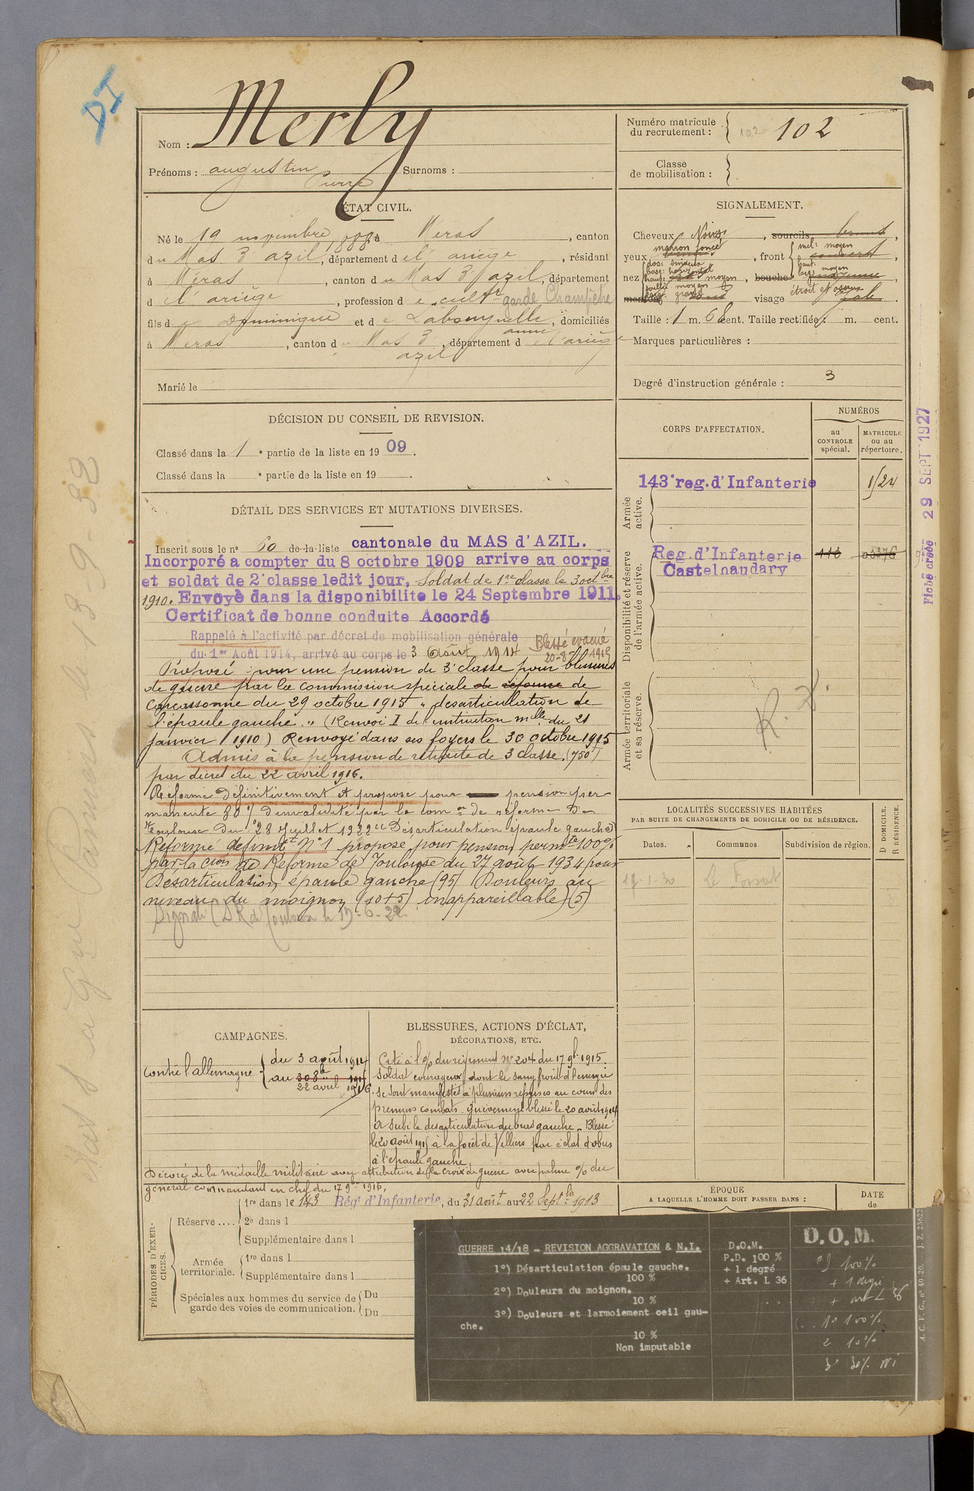 DI
Nom : Merly
Prénoms : augustin Surnoms :
Pierre
ÉTAT CIVIL.
Né le 19 novembre 1888 à Méras, canton
du Mas d'azil, département de l'ariège, résidant
à Méras, canton du Mas d'azil, département
d e l'ariège, profession d e cultr garde Champêtre
fils d e Dominique et d e , domiciliés
anne
à Meras, canton d u Mas d', département d e l'ariège
azil
Marié le
DÉCISION DU CONSEIL DE REVISION.
Classé dans la 1 e partie de la liste en 19 09.
Classé dans la e partie de la liste en 19
DÉTAIL DES SERVICES ET MUTATIONS DIVERSES.
Inscrit sous le n° 60 de la liste cantonale du MAS d'AZIL.
Incorporé a compter du 8 octobre 1909 arrive au corps
et soldat de 2e classe ledit jour, Soldat de 1ere classe le 3 octbre
1910. Envoyé dans la disponibilité le 24 Septembre 1911.
Certificat de bonne conduite Accordé
Rappelé à l'activité par décret de mobilisation générale
du 1er Août 1914, arrivé au corps le 3 Août 1914 Blessé évacué
Proposé pour une pension de 3e classe pour blessures
de guerre par la commission spéciale de réforme de
Carcassonne du 29 octobre 1915 "désarticulation de
l'épaule gauche." (Renvoi I de l'instruction mlle du 21
janvier 1910) Renvoyé dans ses foyers le 30 octobre 1915
Admis à la pension de retraite de 3 classe. (750f)
par décret du 22 avril 1916.
Réformé définitivement et proposé pour pension per
manente 80% d'invalidité par la comon de réforme de
Toulouse du 28 Juillet 1922 "Désarticulation épaule gauche"
Réformé définitt N° 1 proposé pour pension permte 100%
par la cion de Réforme de Toulouse du 27 août 1934 pour
Désarticulation épaule gauche (95) Douleurs au
niveau du moignon (10+5) inappareillable (5)
CAMPAGNES.
contre l'allemagne { du 3 août 1914
au 30 8bre 1915
22 avril 1916
BLESSURES, ACTIONS D'ÉCLAT,
DÉCORATIONS, ETC.
Cité à l'o/ du régiment N° 204 du 17 9bre 1915.
Soldat courageux dont le sang froid et l'énergie
se sont manifestés à plusieurs reprises au cours des
premiers combats. Grièvement blessé le 20 août 1914
a subi la désarticulation du bras gauche. Blessé
le 20 août 1914 à la forêt de par éclat d'obus
à l'épaule gauche
Décoré de la médaille militaire avec attribution de la croix de guerre avec palme o/o du
général commandant en chef du 17 9bre 1916.
PÉRIODES D'EXERCICES.
Réserve .... { 1re dans le 143 Rég. d'Infanterie, du 31 août au 22 Septbre 1913
2e dans l
Supplémentaire dans l
Armée
territoriale. { 1re dans l
Supplémentaire dans l
Spéciales aux hommes du service de
garde des voies de communication. { Du
Du
Numéro matricule
du recrutement : } 102 102
Classe
de mobilisation : }
SIGNALEMENT.
Cheveux Noirs, sourcils bruns,
yeux marron foncé, front { incl: moyen
nez { dos: sinueux
base: horizontal
haut: moyen
saillie moyen
bouche moyenne
visage étroit et osseux
ovale
Taille : 1 m. 66 cent. Taille rectifiée : m. cent.
Marques particulières :
Degré d'instruction générale : 3
CORPS D'AFFECTATION.
NUMÉROS
au
CONTROLE
spécial.
MATRICULE
ou au
répertoire.
Armée
active.
143e reg. d'Infanterie
Disponibilité et réserve
de l'armée active.
Reg. d'Infanterie
Castelnaudary
Armée territoriale
et sa réserve.
Fiche créée 29 SEPT 1927
LOCALITÉS SUCCESSIVES HABITÉES
PAR SUITE DE CHANGEMENTS DE DOMICILE OU DE RÉSIDENCE.
Dates.
Communes
Subdivision de région.
D DOMICILE.
R RÉSIDENCE.
19-1-30 Le Fossat
ÉPOQUE
A LAQUELLE L'HOMME DOIT PASSER DANS :
DATE
de
GUERRE 14/18 - REVISION AGGRAVATION & N.I.
1°) Désarticulation épaule gauche.
100 %
2°) Douleurs du moignon.
10 %
3°) Douleurs et larmoiement oeil gau-
che.
10 %
Non imputable
D.O.M.
P.D. 100 %
+ 1 degré
+ Art. L 36
D.O.M.
PD 100%
+ 1 degré
+ art L 36
1° 100%
2 10%
3° 10% NI